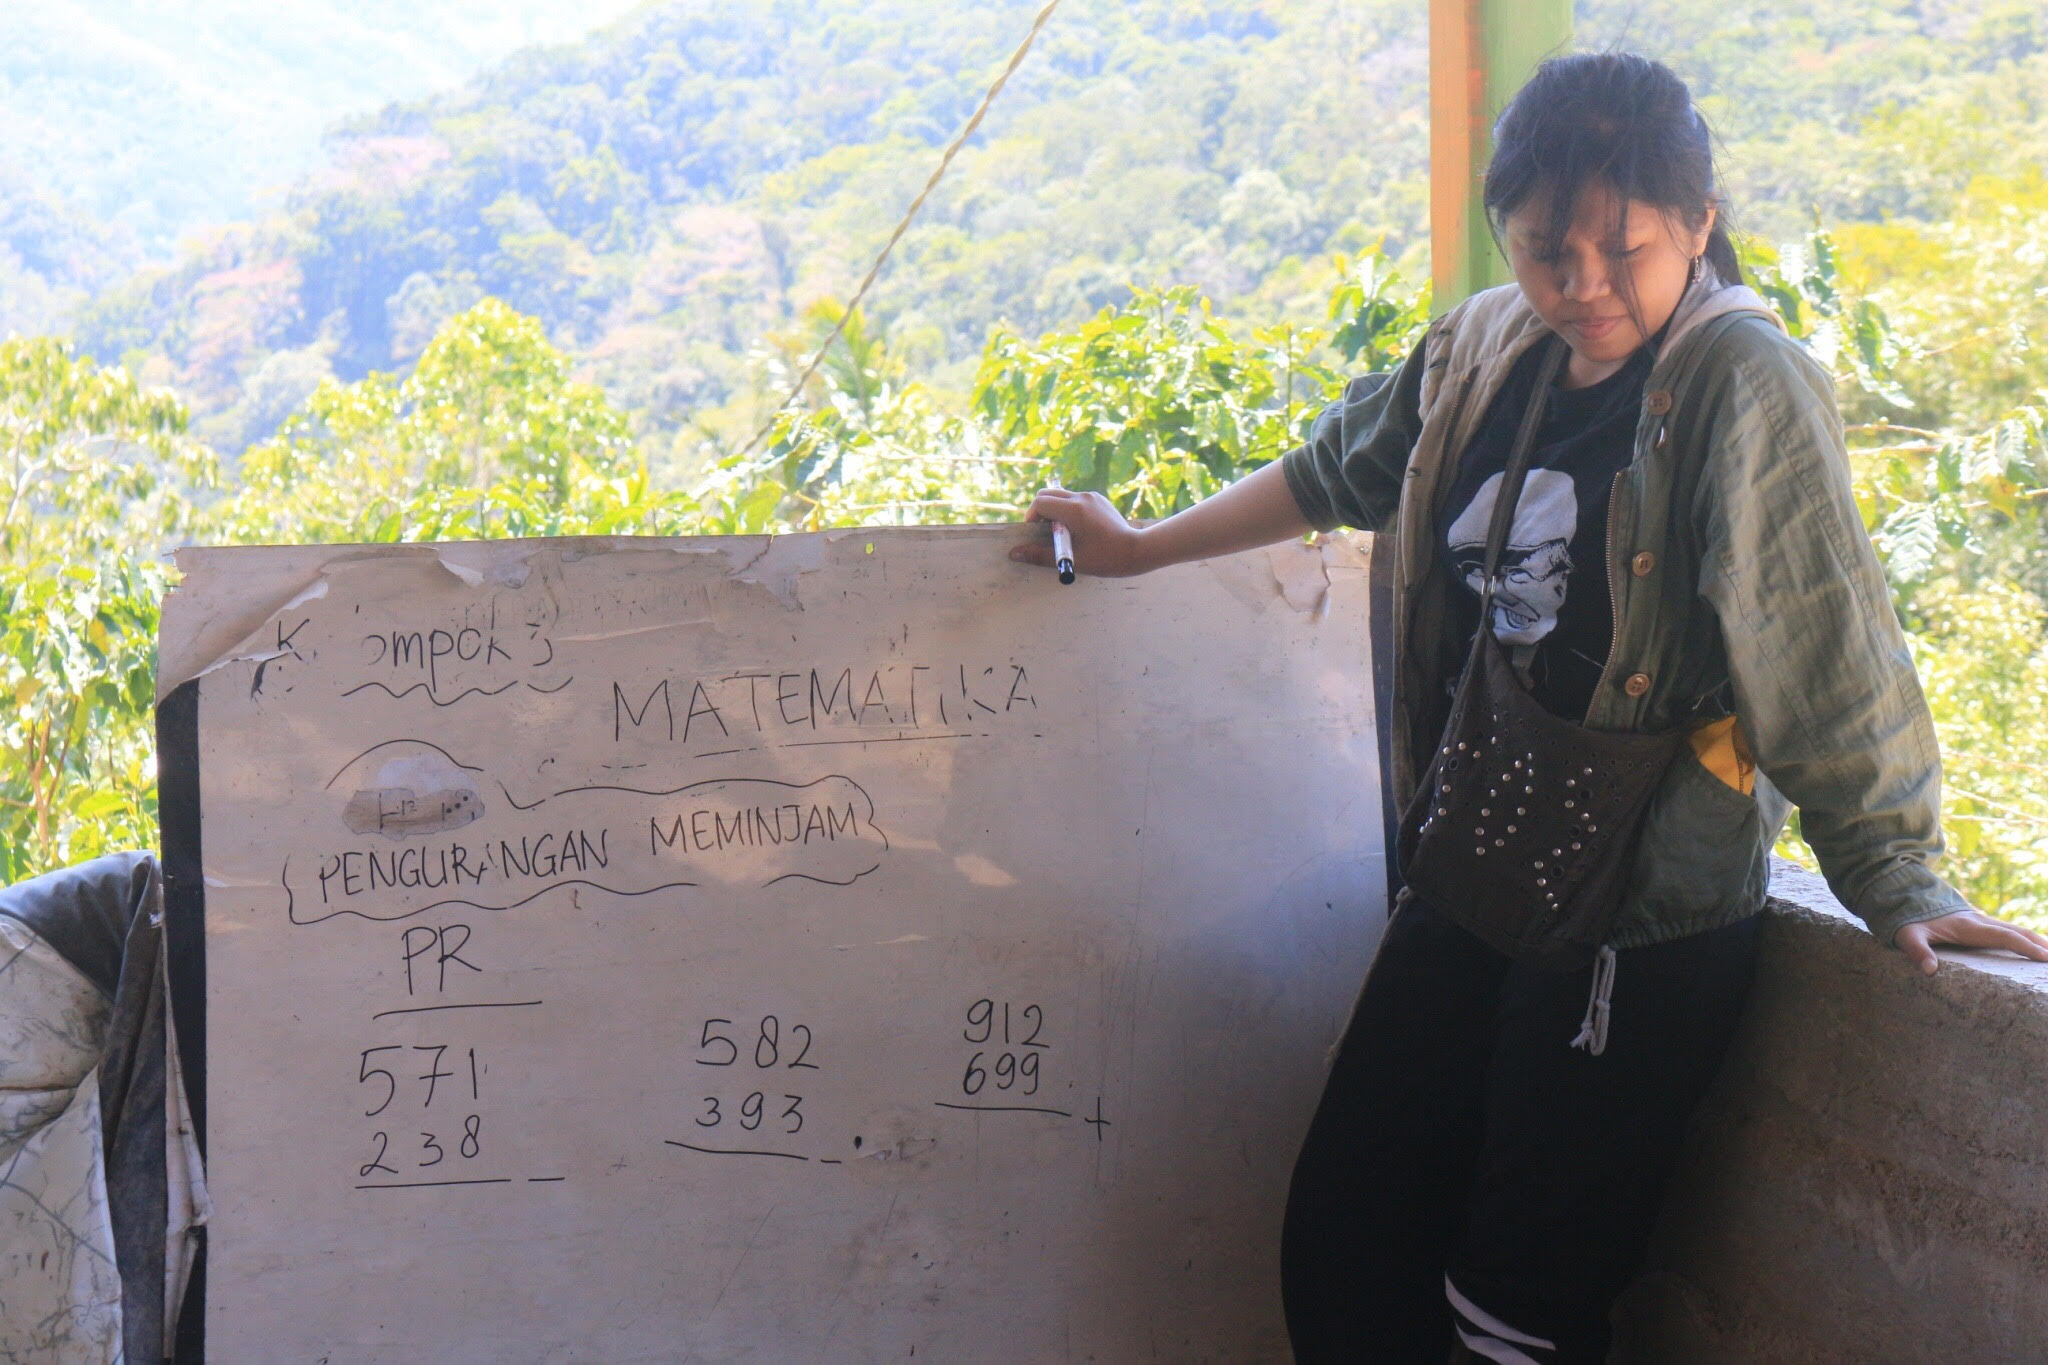 K ompok 3
MATEMATIKA
PENGURANGAN MEMINJAM
PR
571
238
-
582
393
-
912
699
+